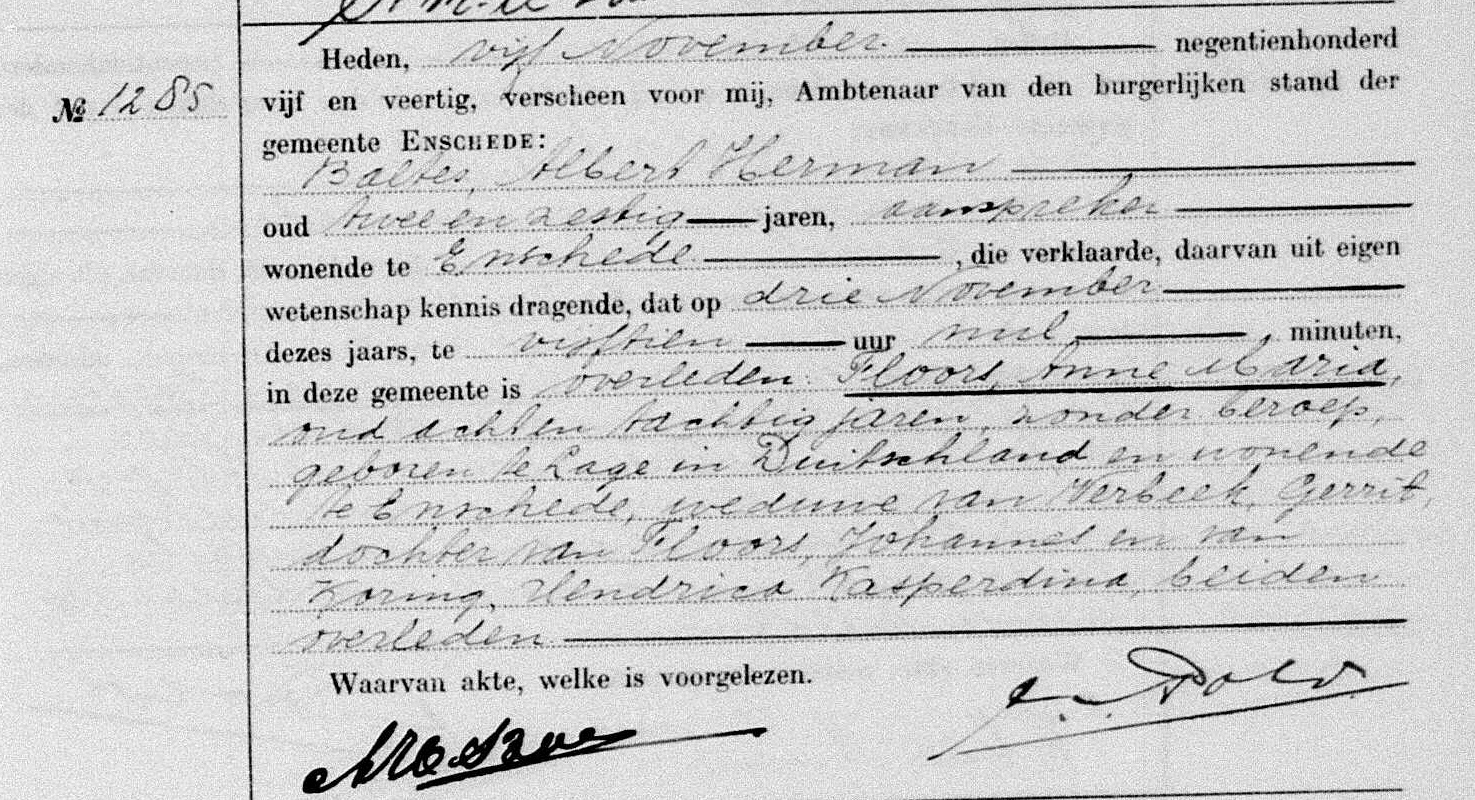 Heden, vijf November negentienhonderd
№ 1285
vijf en veertig, verscheen voor mij, Ambtenaar van den burgerlijken stand der
gemeente ENSCHEDE:
Baltes, Albert Herman
oud twee en zestig jaren, aanspreker
wonende te Enschede, die verklaarde, daarvan uit eigen
wetenschap kennis dragende, dat op drie November
dezes jaars, te vijftien uur nul minuten,
in deze gemeente is overleden: Floors, Anne Maria,
oud achten tachtig jaren, zonder beroep,
geboren te Lage in Duitschland en wonende
te Enschede, weduwe van Werbeek, Gerrit,
dochter van Floors, Johannes en van
Zoring, Hendrica Kasperdina, beiden
overleden
Waarvan akte, welke is voorgelezen.